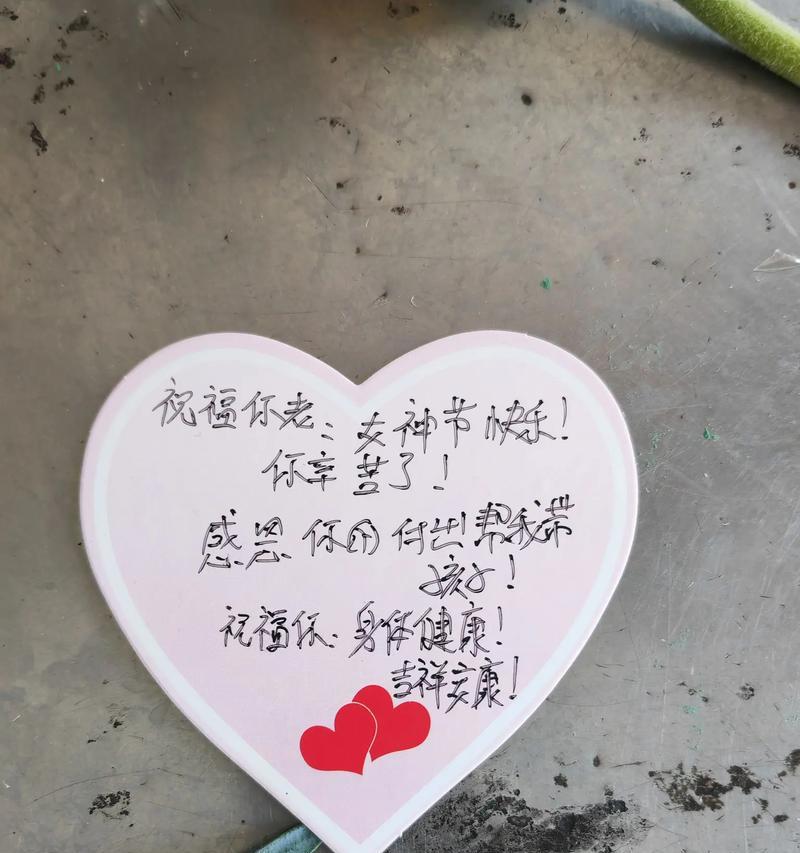 祝福你老：女神节快乐！
你辛苦了！
感恩你的付出！帮我带
孩子！
祝福你：身体健康！
吉祥安康！